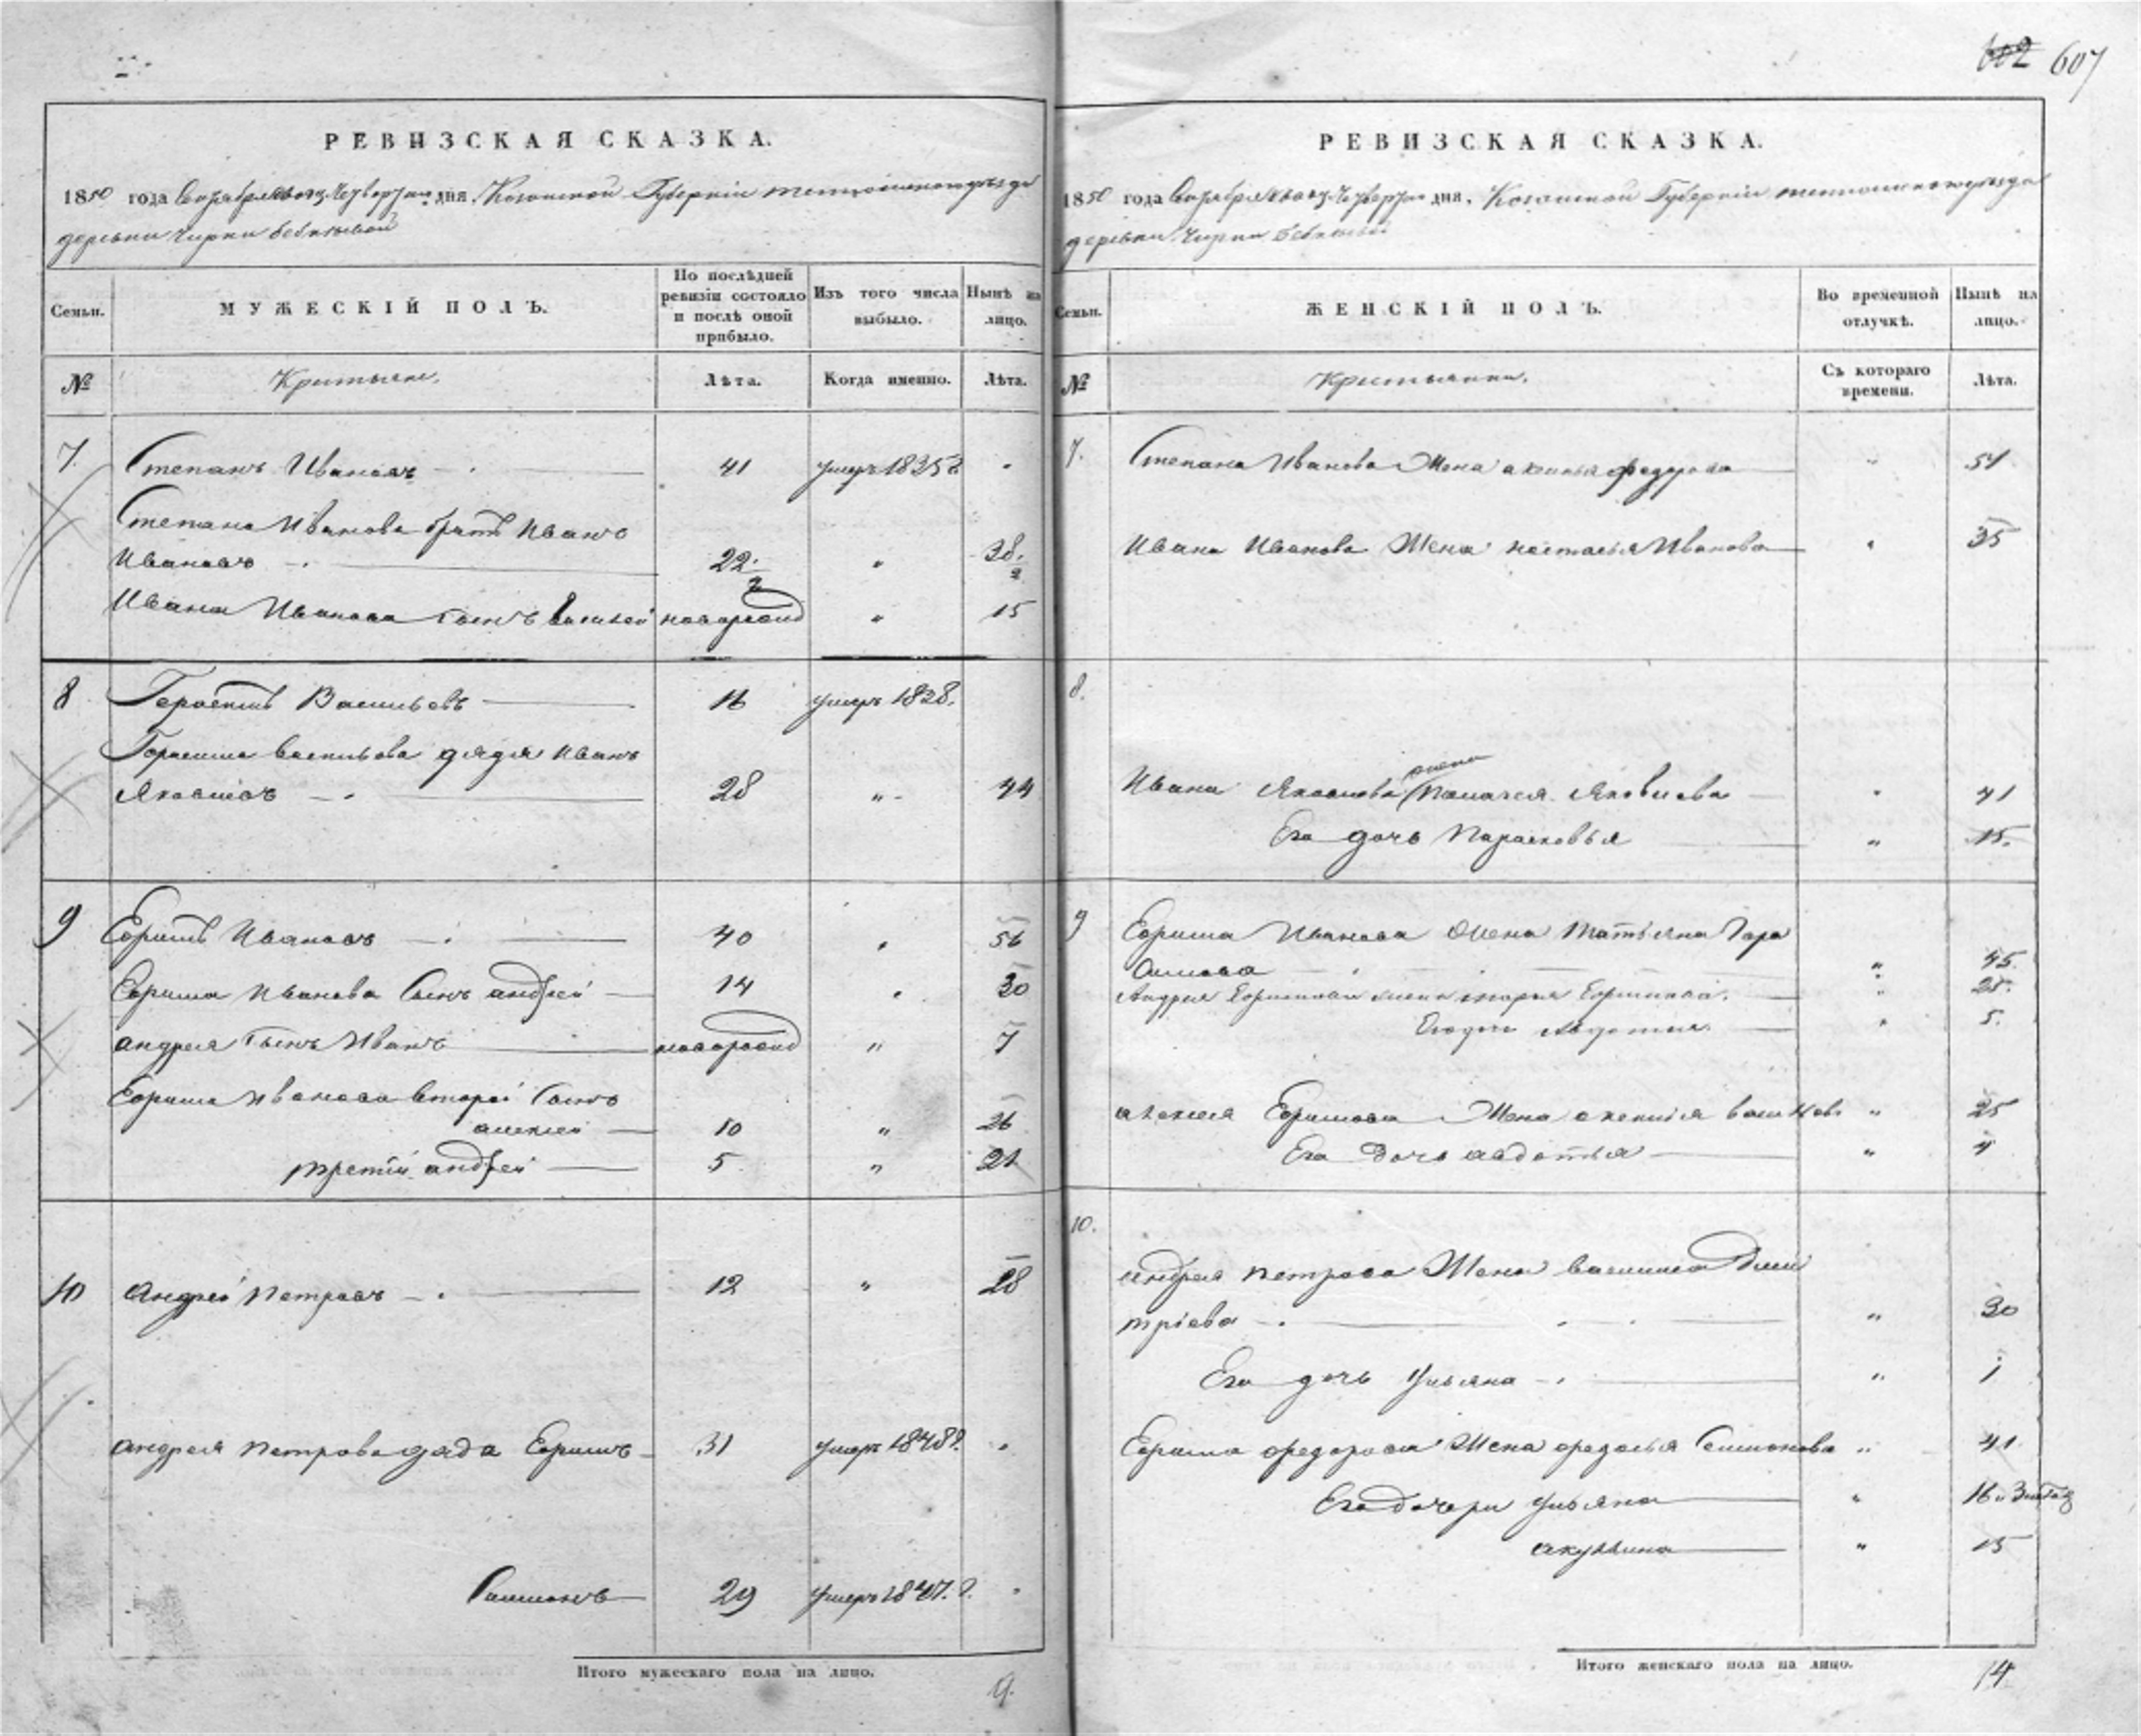 602 607
РЕВИЗСКАЯ СКАЗКА.
1850 года Октября дня. Казанской Губернiи
деревни Чирки
Семьи. МУЖЕСКIЙ ПОЛЪ. По послѣдней ревизiи состояло и послѣ оной прибыло. Изъ того числа выбыло. Нынѣ на лицо.
№ Крестьяне. Лѣта. Когда именно. Лѣта.
7. Степанъ Ивановъ 41 умеръ 1835 г "
Степана Иванова братъ Иванъ
Ивановъ 22. " 38.
Ивана Иванова сынъ Василей новорожд " 15
8 Герасимъ Васильевъ 16 умеръ 1838.
Герасима Васильева дядя Иванъ
Яковлевъ 28 " 44
9 Ефимъ Ивановъ 40 " 56
Ефима Иванова Сынъ андрей 14 " 30
андрея сынъ Иванъ новорожд " 7
Ефима Иванова второй Сынъ
алексей 10 " 26
третiй андрей 5 " 21
10 Андрей Петровъ 12 " 28
андрея Петрова дядя Ефимъ 31 умеръ 1848 г. "
Симионъ 29 умеръ 1847. г. "
Итого мужескаго пола на лицо. 9.
РЕВИЗСКАЯ СКАЗКА.
1850 года Октября дня. Казанской Губернiи
деревни Чирки
Семьи. ЖЕНСКIЙ ПОЛЪ. Во временной отлучкѣ. Нынѣ на лицо.
№ Крестьянки. Съ котораго времени. Лѣта.
7. Степана Иванова Жена аксинья федорова " 54
Ивана Иванова Жена настасья Иванова " 35
8.
жена
Ивана Яковлева Яковлева " 41
Его дочь Парасковья " 15.
9 Ефима Иванова Жена Татьяна Гера
симова " 45.
Андрея Ефимова жена марья Ефимова. " 28.
Его дочь авдотья " 5.
алексея Ефимова Жена аксинья " 25
Его дочь авдотья " 4
10.
андрея Петрова Жена василиса Дми
трiева " 30
Его дочь Ульяна " 1
Ефима федорова Жена федосья Симионова " 41
Его дочери Ульяна " 16
акулина " 15
Итого женскаго пола на лицо. 14